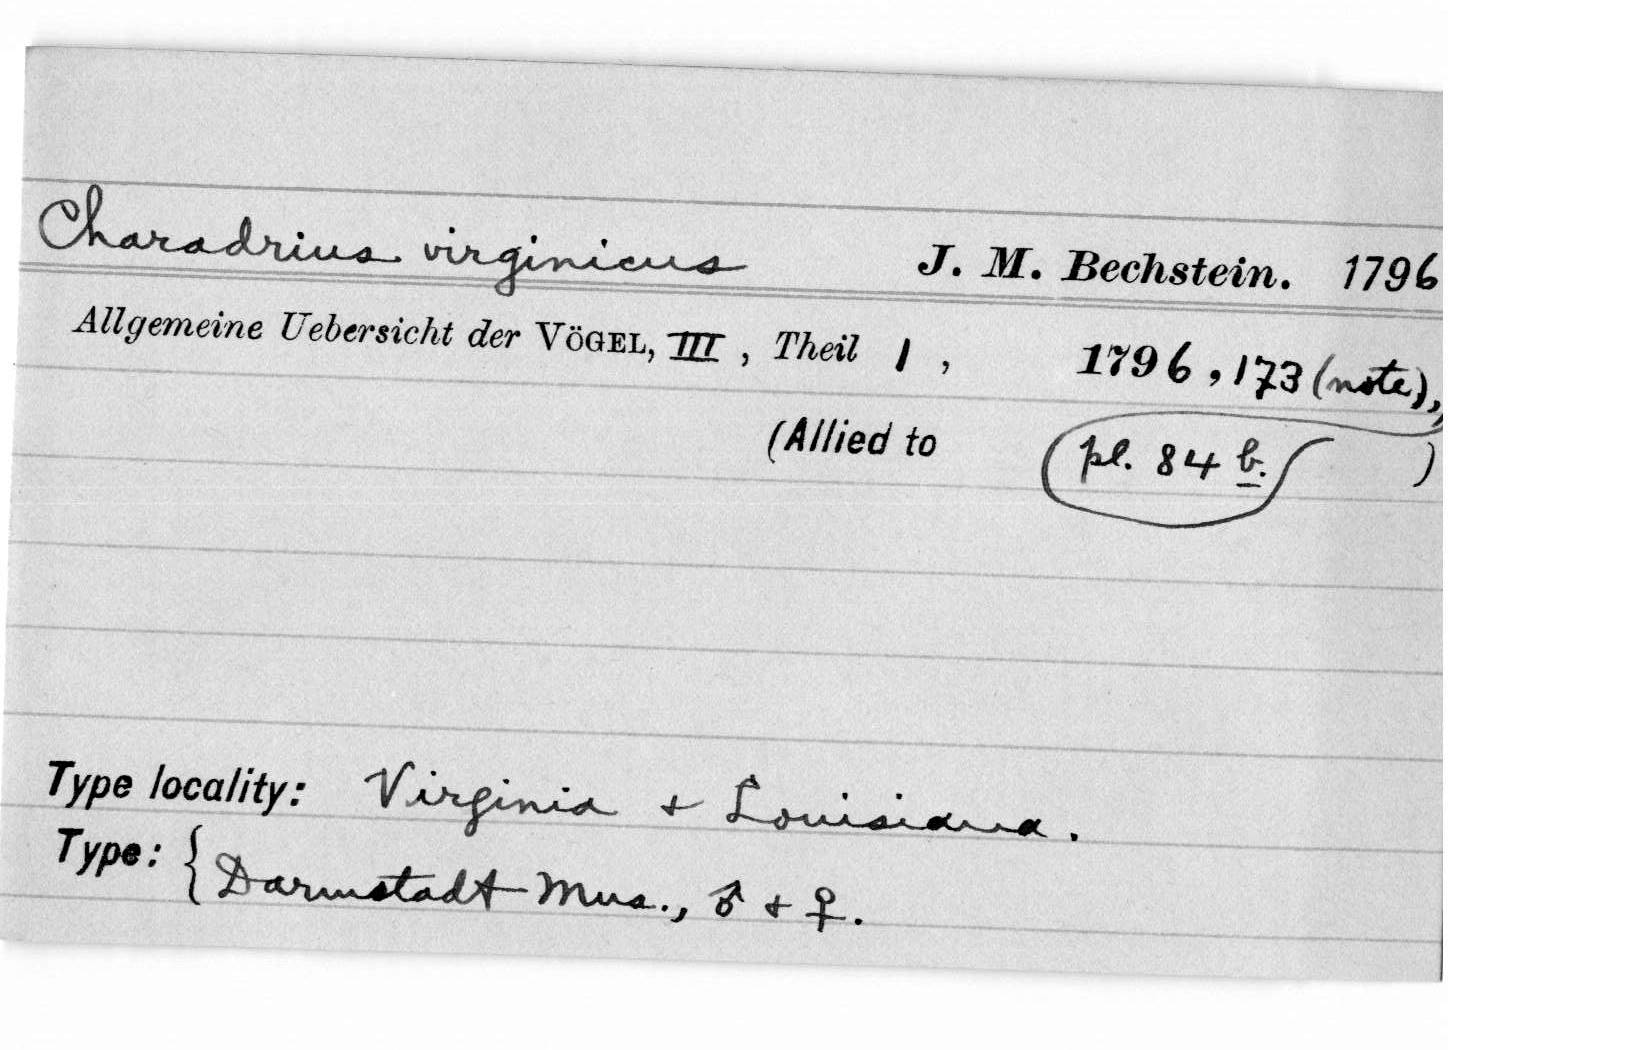 Charadrius virginicus J. M. Bechstein. 1796
Allgemeine Uebersicht der VÖGEL, III, Theil 1, 1796, 173 (note),
(Allied to pl. 84 b. )
Type locality: Virginia + Louisiana.
Type: {Darmstadt Mus., ♂ + ♀.